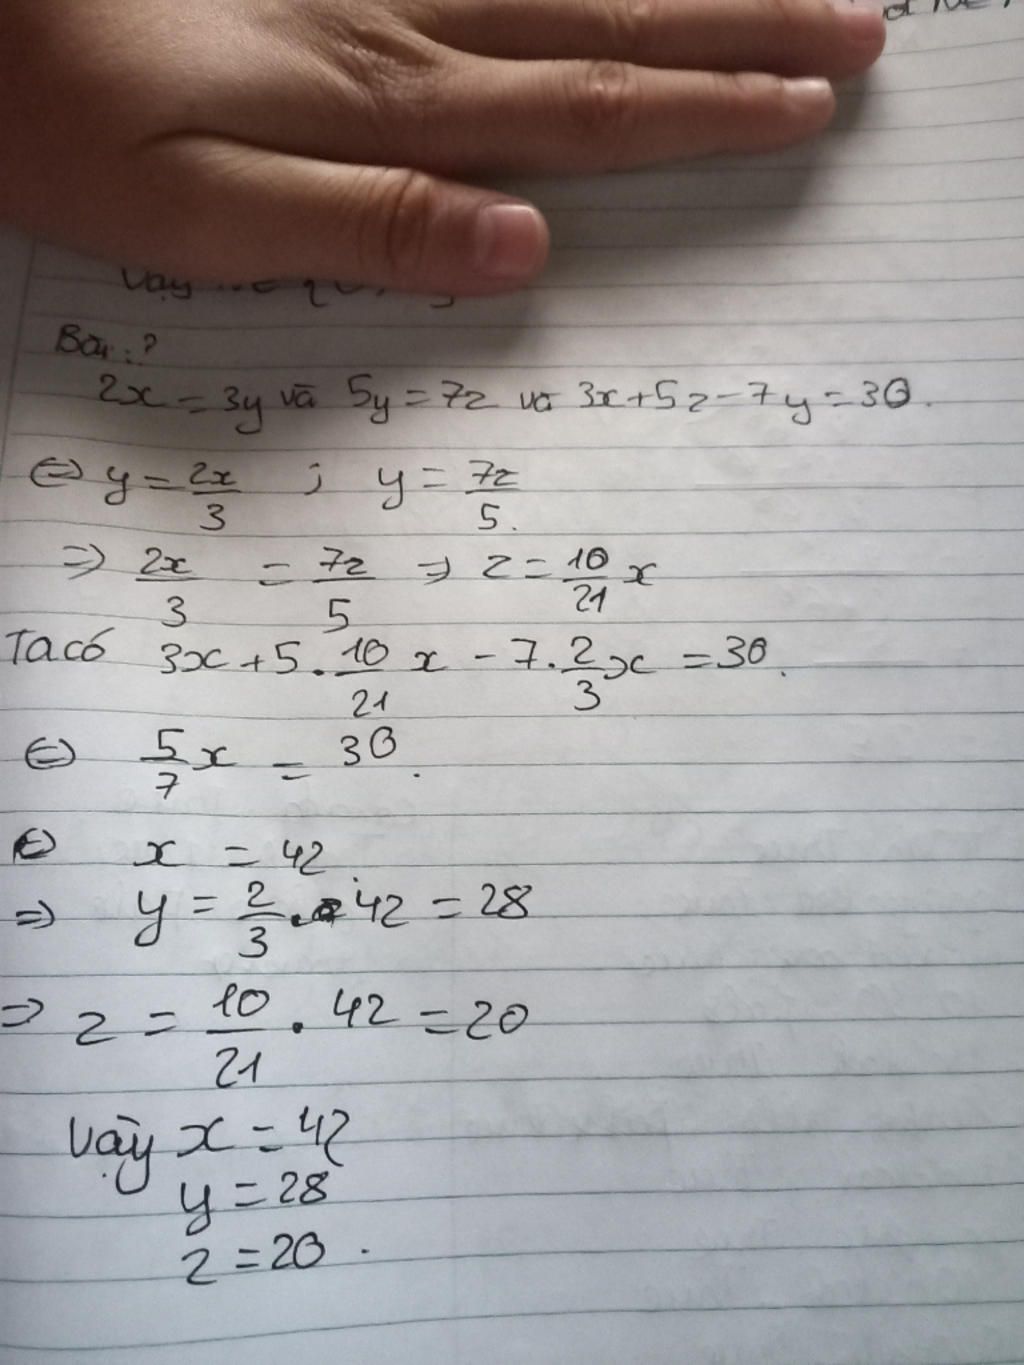 Vậy
Bài: ?
2x = 3y và 5y = 7z và 3x + 5z - 7y = 30.
⇔ y = 2x/3 ; y = 7z/5.
⇒ 2x/3 = 7z/5 ⇒ z = 10/21 x
Ta có 3x + 5 . 10/21 x - 7 . 2/3 x = 30.
⇔ 5/7 x = 30.
⇔ x = 42
⇒ y = 2/3 . 42 = 28
⇒ z = 10/21 . 42 = 20
Vậy x = 42
y = 28
z = 20 .